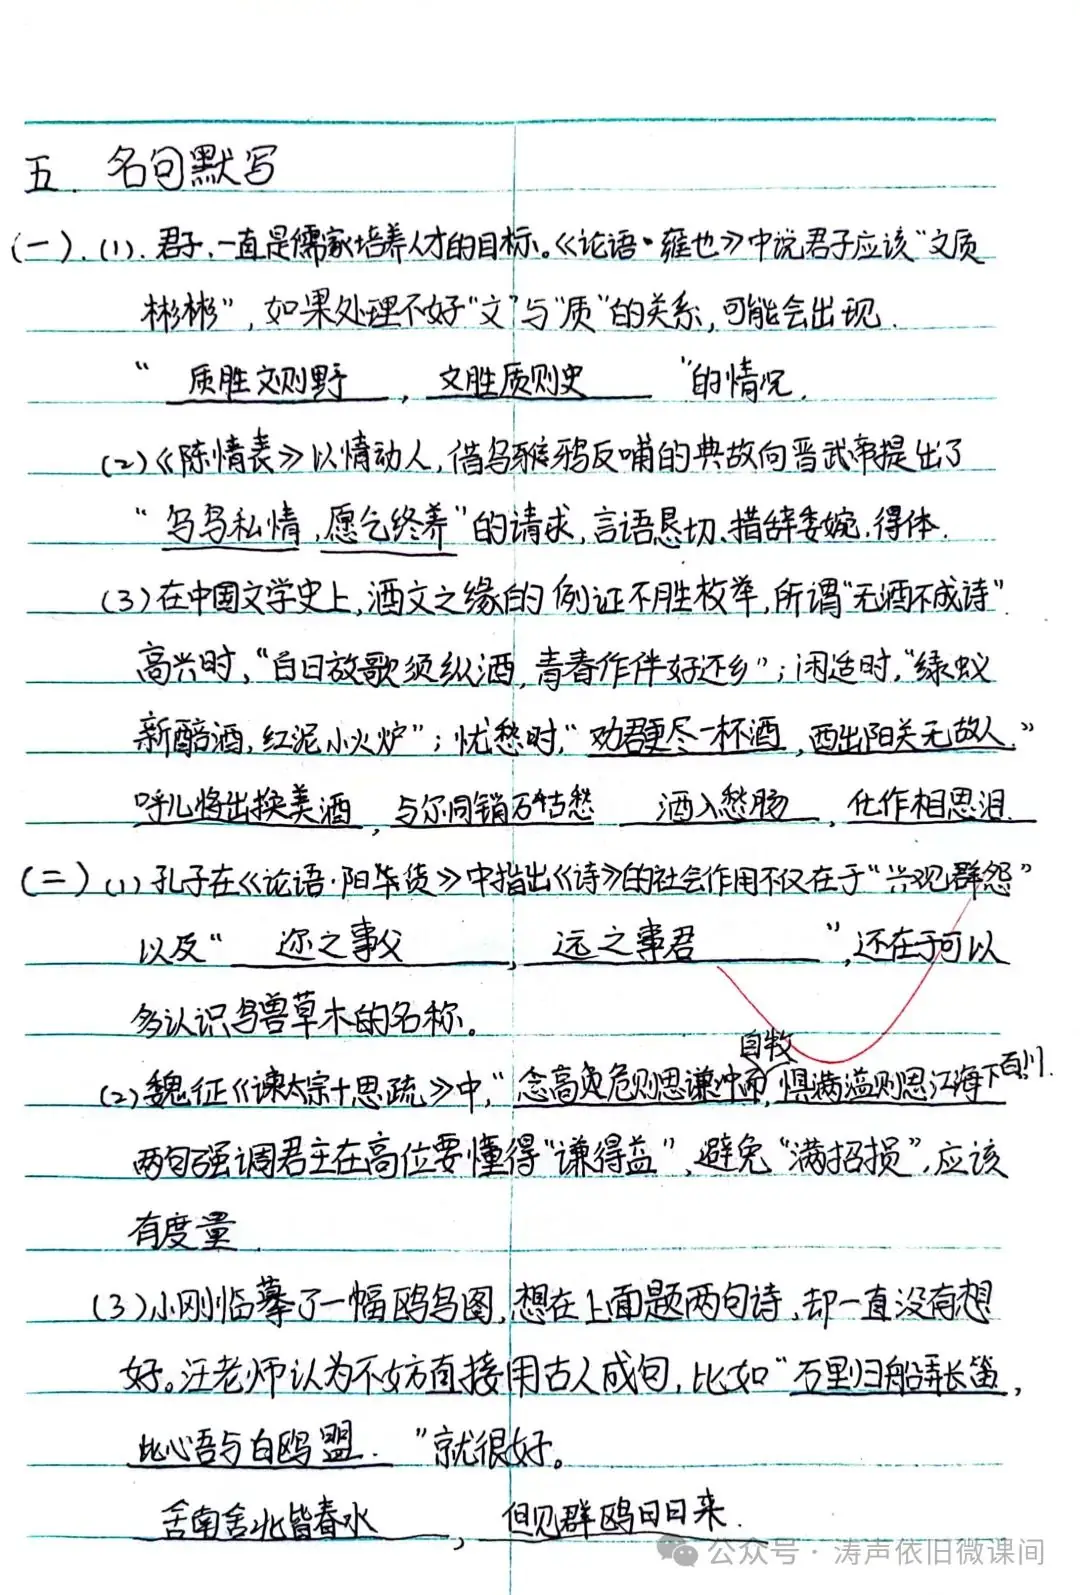 五. 名句默写
(一).(1).君子,一直是儒家培养人才的目标。《论语·雍也》中说君子应该"文质
彬彬",如果处理不好"文"与"质"的关系,可能会出现.
" 质胜文则野 , 文胜质则史 "的情况.
(2)《陈情表》以情动人,借乌鸦反哺的典故向晋武帝提出了
"乌鸟私情,愿乞终养"的请求,言语恳切、措辞委婉.得体.
(3)在中国文学史上,酒文之缘的例证不胜枚举,所谓"无酒不成诗".
高兴时,"白日放歌须纵酒,青春作伴好还乡";闲适时,"绿蚁
新醅酒,红泥小火炉";忧愁时,"劝君更尽一杯酒,西出阳关无故人."
呼儿将出换美酒,与尔同销万古愁 酒入愁肠,化作相思泪.
(二)(1)孔子在《论语·阳货》中指出《诗》的社会作用不仅在于"兴观群怨"
以及" 迩之事父 , 远之事君 ",还在于可以
多认识鸟兽草木的名称。
(2)魏征《谏太宗十思疏》中,"念高危则思谦冲而自牧,惧满溢则思江海下百川.
两句强调君主在高位要懂得"谦得益",避免"满招损",应该
有度量.
(3)小刚临摹了一幅鸥鸟图,想在上面题两句诗,却一直没有想
好。汪老师认为不妨直接用古人成句,比如"万里归船弄长笛,
此心吾与白鸥盟."就很好。
舍南舍北皆春水 , 但见群鸥日日来.
公众号·涛声依旧微课间